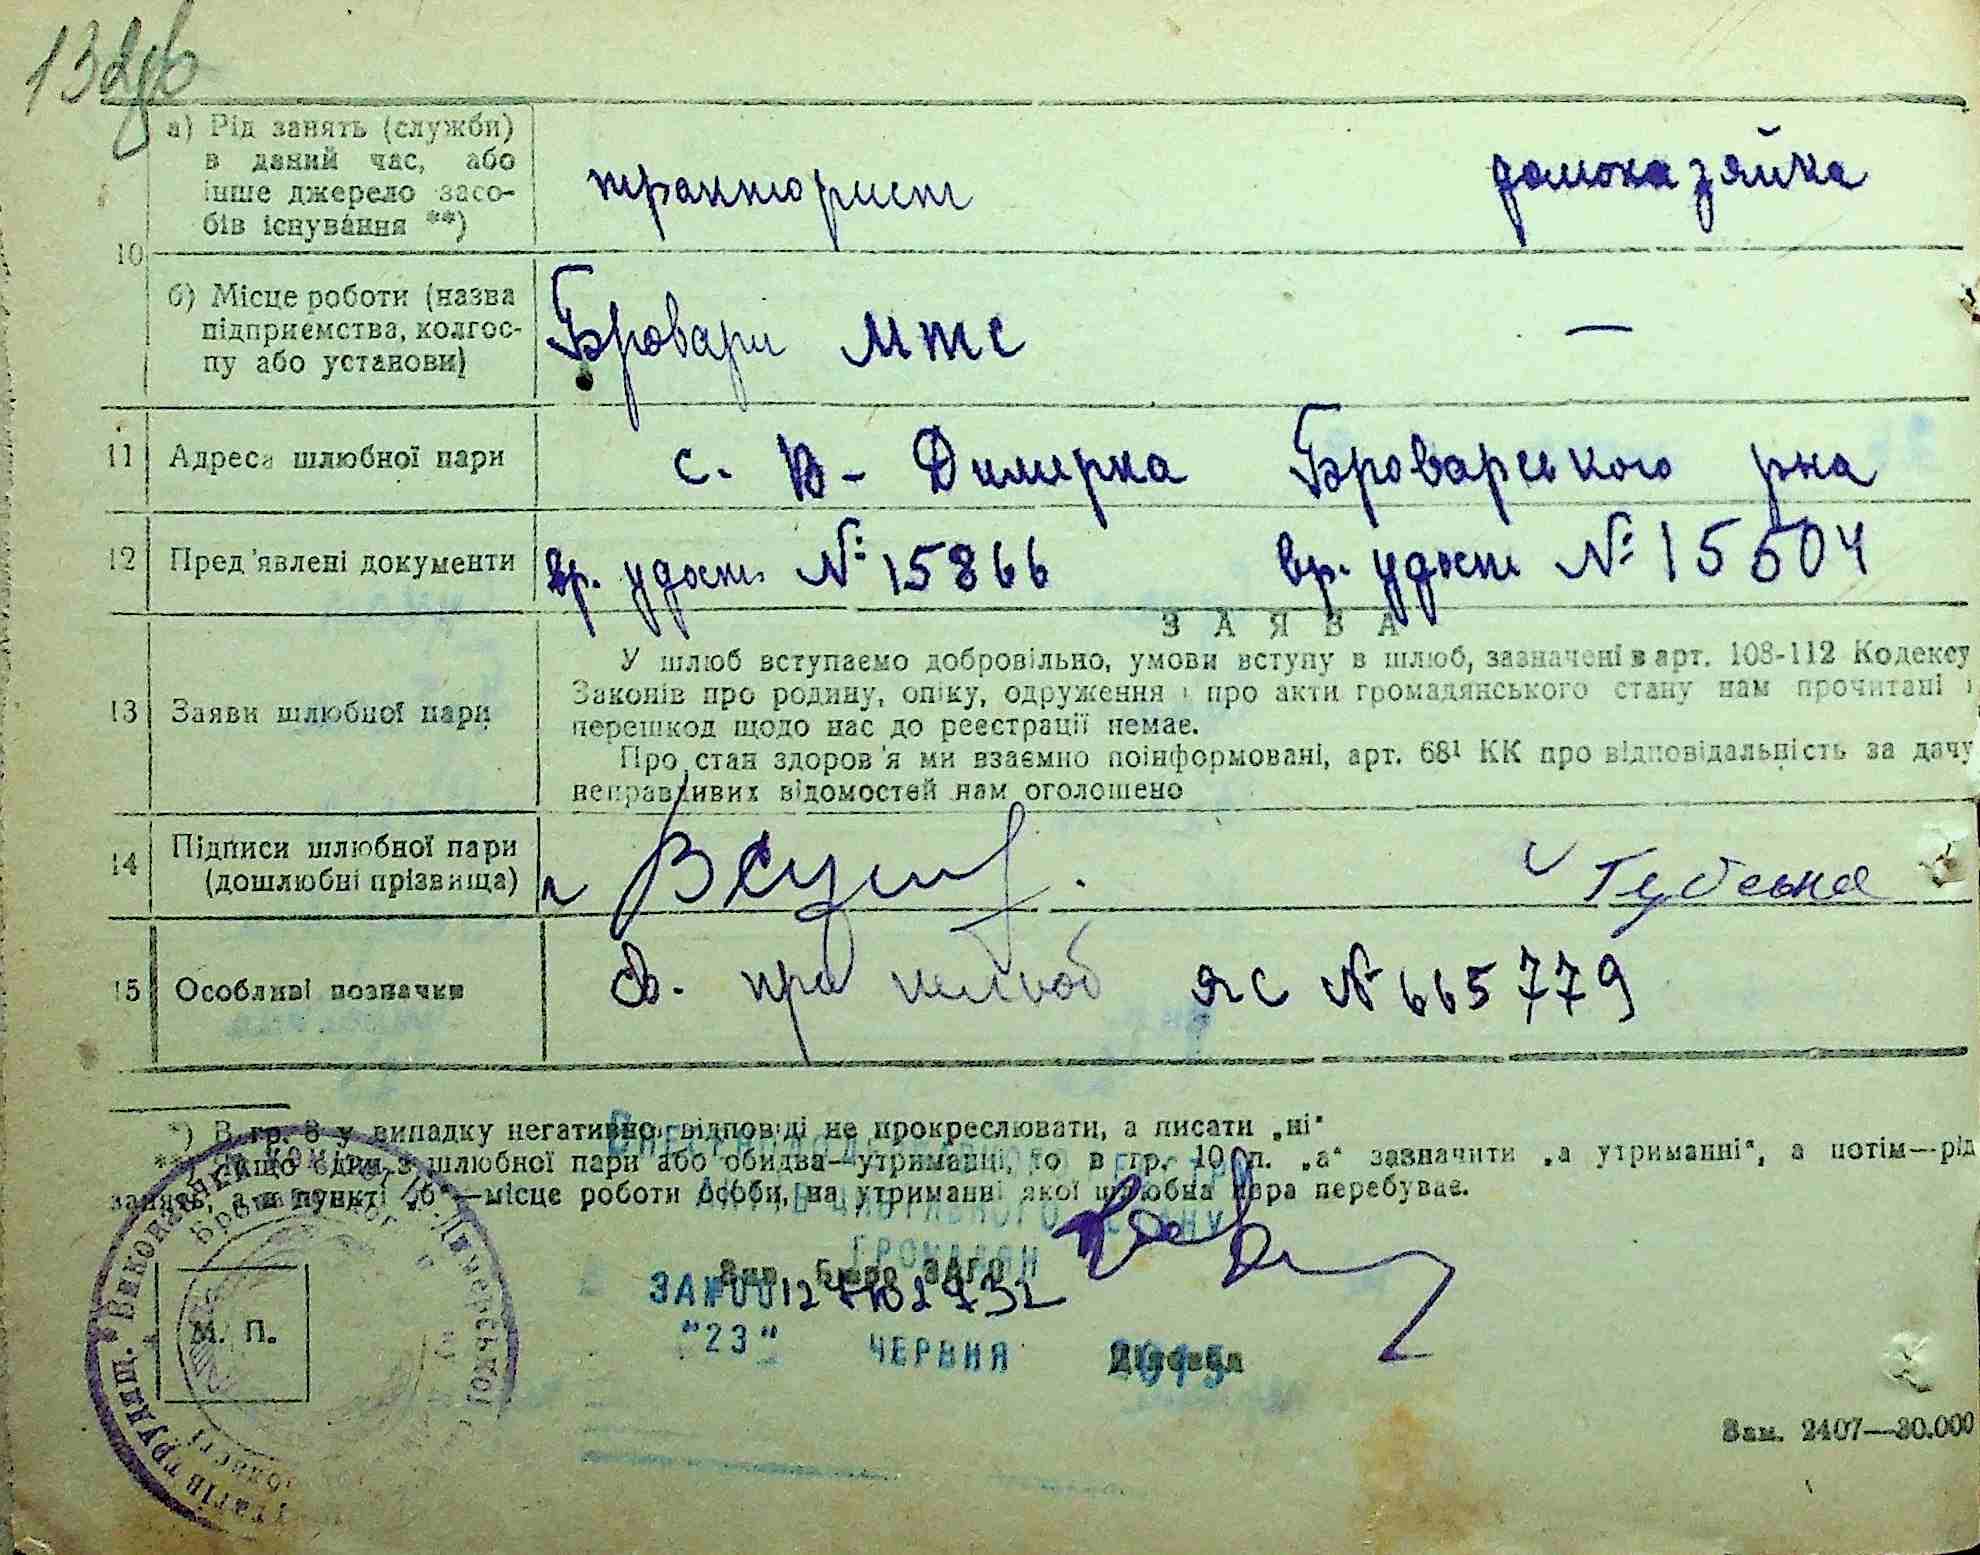 132
а) Рід занять (служби)
в даний час, або
інше джерело засо-
бів існування **)
тракторист
домохазяйка
10
б) Місце роботи (назва
підприємства, колгос-
пу або установи)
Бровари МТС
—
11 Адреса шлюбної пари
с. В-Димерка Броварського р-на
12 Пред'явлені документи
вр. удост. № 15866
вр. удост № 15504
13 Заяви шлюбної пари
ЗАЯВА
У шлюб вступаємо добровільно, умови вступу в шлюб, зазначені в арт. 108-112 Кодексу
Законів про родину, опіку, одруження і про акти громадянського стану нам прочитані і
перешкод щодо нас до реєстрації немає.
Про стан здоров'я ми взаємно поінформовані, арт. 68¹ КК про відповідальність за дачу
неправдивих відомостей нам оголошено
14 Підписи шлюбної пари
(дошлюбні прізвища)
15 Особливі позначки
Св. про шлюб ЯС № 665779
*) В гр. 8 у випадку негативної відповіді не прокреслювати, а писати „ні"
**) Якщо один з шлюбної пари або обидва—утриманці, то в гр. 10 п. „а" зазначити „а утриманні", а потім—рід
занять, а в пункті „б"—місце роботи особи, на утриманні якої шлюбна пара перебуває.
АКТІВ ЦИВІЛЬНОГО СТАНУ
ГРОМАДЯН
Зав. Бюро ЗАГС
ЗА № 00127102732
"23" ЧЕРВНЯ 2015
Діловод
М. П.
Зам. 2407—30.000